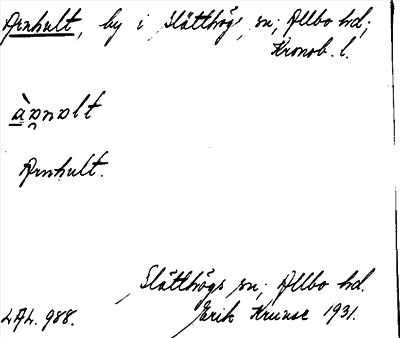 Arnhult, by i Slätthög, sn; Allbo hd;
Kronob. l.
Arnhult.
Slätthögs sn; Allbo hd.
LAL. 988. 1931.